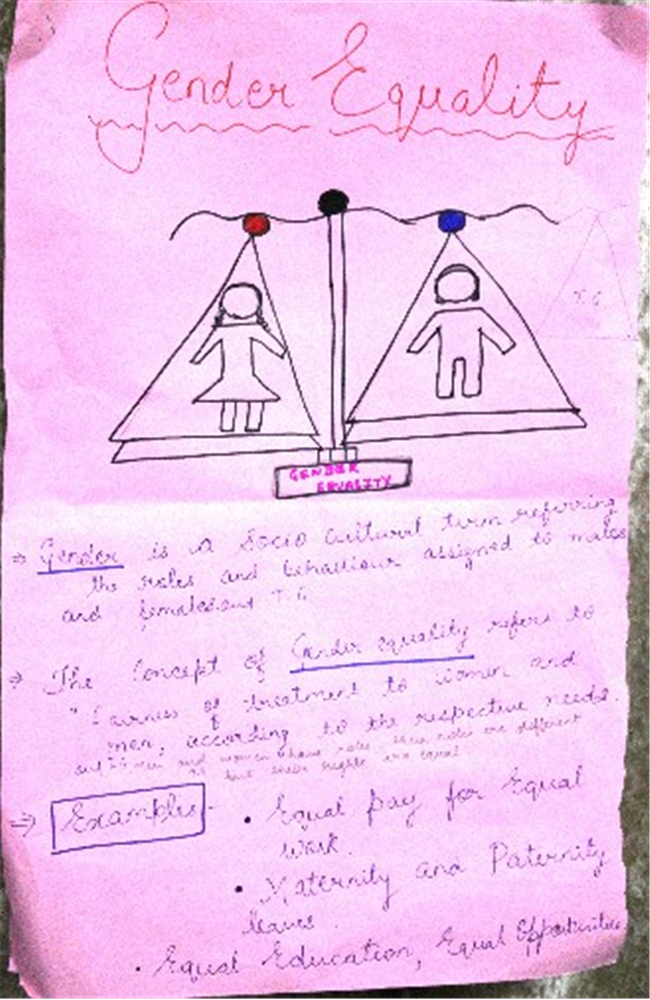 Gender Equality
T.G
GENDER
EQUALITY
⇒ Gender is a Socio cultural term referring
the roles and behaviour assigned to males
and females T.G
⇒ The Concept of Gender equality refers to
"Fairness of treatment to women and
men, according to the respective needs.
men and women have roles, their roles are different
but their rights are equal
⇒ Examples -
• Equal pay for Equal
work.
• Maternity and Paternity
leaves.
• Equal Education, Equal Opportunities